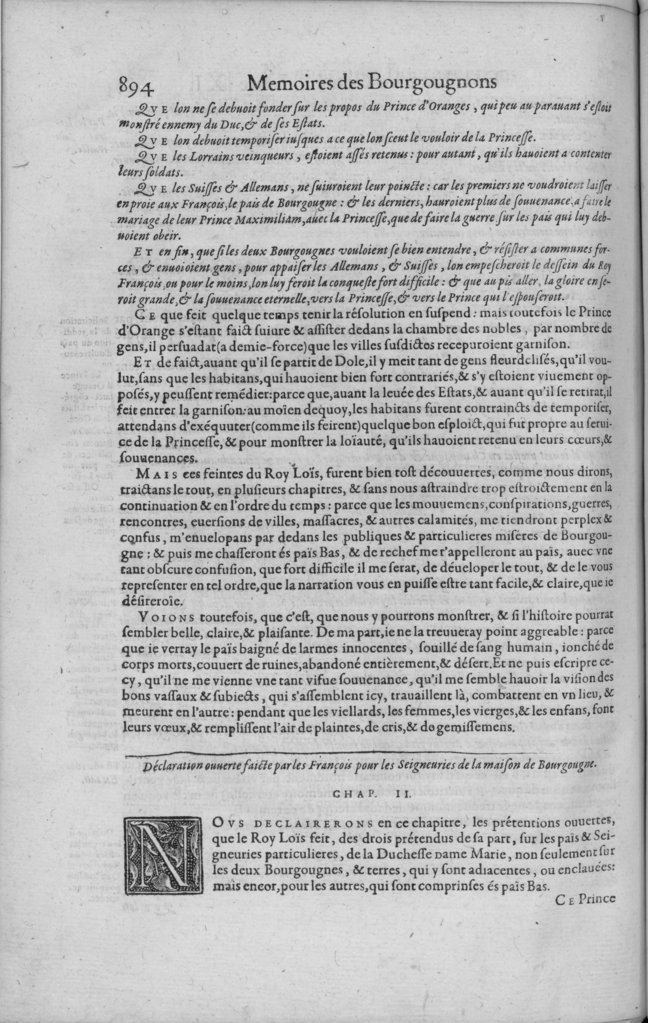 894 Memoires des Bourgougnons
QVE lon ne se debuoit fonder sur les propos du Prince d'Oranges, qui peu au parauant s'estoit
monstré ennemy du Duc, & de ses Estats.
QVE lon debuoit temporiser iusques a ce que lon sceut le vouloir de la Princesse.
QVE les Lorrains veinqueurs, estoient assés retenus: pour autant, qu'ils hauoient a contenter
leurs soldats.
QVE les Suisses & Allemans, ne suiuroient leur poincte: car les premiers ne voudroient laisser
en proie aux François, le païs de Bourgougne: & les derniers, hauroient plus de souuenance, a faire le
mariage de leur Prince Maximiliám, auec la Princesse, que de faire la guerre, sur les païs qui luy deb-
uoient obeir.
ET en fin, que si les deux Bourgougnes vouloient se bien entendre, & résister a communes for-
ces, & enuoioient gens, pour appaiser les Allemans, & Suisses, lon empescheroit le dessein du Roy
François, ou pour le moins, lon luy feroit la conqueste fort difficile: & que au pis aller, la gloire en se-
roit grande, & la souuenance eternelle, vers la Princesse, & vers le Prince qui l'espouseroit.
CE que feit quelque temps tenir la résolution en suspend: mais toutefois le Prince
d'Orange s'estant faict suiure & assister dedans la chambre des nobles, par nombre de
gens, il persuadat (a demie-force) que les villes susdictes recepuroient garnison.
ET de faict, auant qu'il se partit de Dole, il y meit tant de gens fleurdelisés, qu'il vou-
lut, sans que les habitans, qui hauoient bien fort contrariés, & s'y estoient viuement op-
posés, y peussent remédier: parce que, auant la leuée des Estats, & auant qu'il se retirat, il
feit entrer la garnison: au moïen dequoy, les habitans furent contraincts de temporiser,
attendans d'exéquuter (comme ils feirent) quelque bon esploict, qui fut propre au serui-
ce de la Princesse, & pour monstrer la loïauté, qu'ils hauoient retenu en leurs cœurs, &
souuenances.
MAIS ces feintes du Roy Loïs, furent bien tost découuertes, comme nous dirons,
traictans le tout, en plusieurs chapitres, & sans nous astraindre trop estroictement en la
continuation & en l'ordre du temps: parce que les mouuemens, conspirations, guerres,
rencontres, euersions de villes, massacres, & autres calamités, me tiendront perplex &
confus, m'enuelopans par dedans les publiques & particulieres misères de Bourgou-
gne: & puis me chasseront és païs Bas, & de rechef me r'appelleront au païs, auec vne
tant obscure confusion, que fort difficile il me serat, de déueloper le tout, & de le vous
representer en tel ordre, que la narration vous en puisse estre tant facile, & claire, que ie
désireroïe.
VOIONS toutefois, que c'est, que nous y pourrons monstrer, & si l'histoire pourrat
sembler belle, claire, & plaisante. De ma part, ie ne la treuueray point aggreable: parce
que ie verray le païs baigné de larmes innocentes, souillé de sang humain, ionché de
corps morts, couuert de ruines, abandoné entièrement, & désert. Et ne puis escripre ce-
cy, qu'il ne me vienne vne tant vifue souuenance, qu'il me semble hauoir la vision des
bons vassaux & subiects, qui s'assemblent icy, trauaillent là, combattent en vn lieu, &
meurent en l'autre: pendant que les viellards, les femmes, les vierges, & les enfans, font
leurs vœux, & remplissent l'air de plaintes, de cris, & de gemissemens.
Déclaration ouuerte faicte par les François pour les Seigneuries de la maison de Bourgougne.
CHAP. II.
NOVS DECLAIRERONS en ce chapitre, les prétentions ouuertes,
que le Roy Loïs feit, des drois prétendus de sa part, sur les païs & Sei-
gneuries particulieres, de la Duchesse dame Marie, non seulement sur
les deux Bourgougnes, & terres, qui y sont adiacentes, ou enclauées:
mais encor, pour les autres, qui sont comprinses és païs Bas.
CE Prince